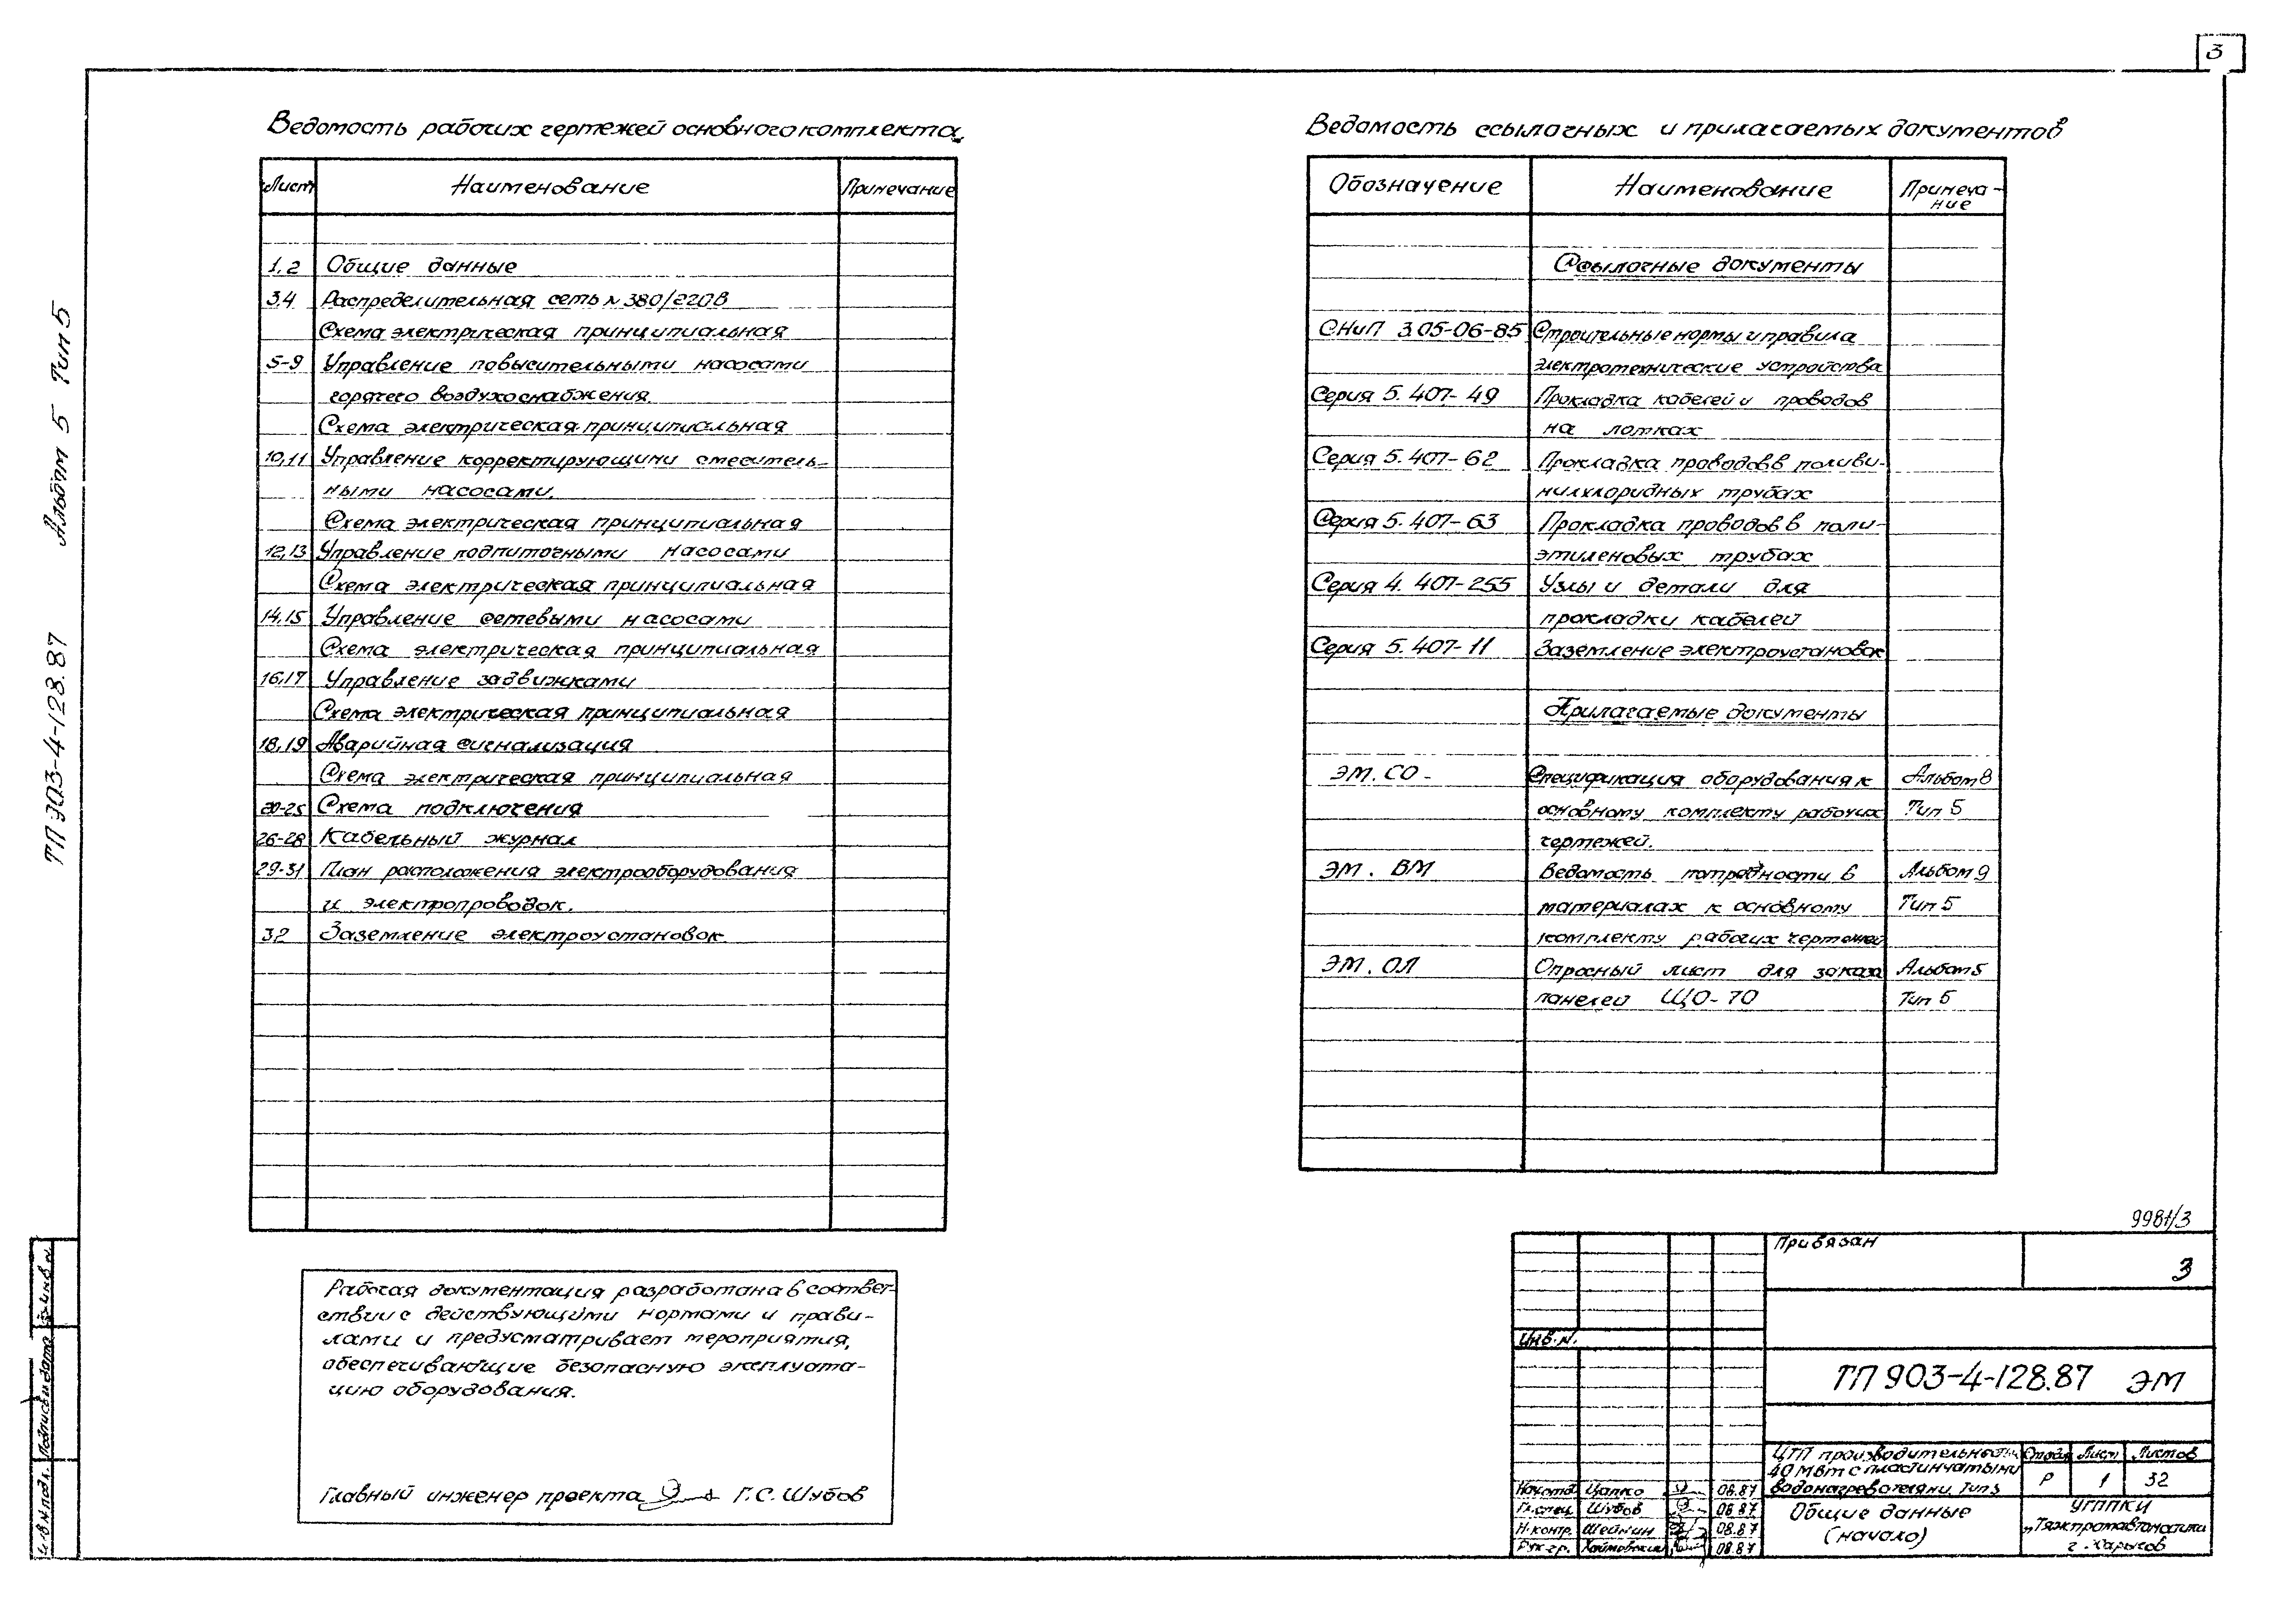 3
Ведомость рабочих чертежей основного комплекта
Лист Наименование Примечание
1,2 Общие данные
3,4 Распределительная сеть ~ 380/220В
Схема электрическая принципиальная
5-9 Управление повысительными насосами
горячего воздухоснабжения.
Схема электрическая принципиальная
10,11 Управление корректирующими смеситель-
ными насосами.
Схема электрическая принципиальная
12,13 Управление подпиточными насосами
Схема электрическая принципиальная
14,15 Управление сетевыми насосами
Схема электрическая принципиальная
16,17 Управление задвижками
Схема электрическая принципиальная
18,19 Аварийная сигнализация
Схема электрическая принципиальная
20-25 Схема подключения
26-28 Кабельный журнал
29-31 План расположения электрооборудования
и электропроводок.
32 Заземление электроустановок
Ведомость ссылочных и прилагаемых документов
Обозначение Наименование Примеча-
ние
Ссылочные документы
СНиП 3.05-06-85 Строительные нормы и правила
электротехнические устройства
Серия 5.407-49 Прокладка кабелей и проводов
на лотках
Серия 5.407-62 Прокладка проводов в поливи-
нилхлоридных трубах
Серия 5.407-63 Прокладка проводов в поли-
этиленовых трубах
Серия 4.407-255 Узлы и детали для
прокладки кабелей
Серия 5.407-11 Заземление электроустановок
Прилагаемые документы
ЭМ.СО- Спецификация оборудования к Альбом 8
основному комплекту рабочих Тип 5
чертежей.
ЭМ. ВМ Ведомость потребности в Альбом 9
материалах к основному Тип 5
комплекту рабочих чертежей
ЭМ. ОЛ Опросный лист для заказа Альбом 5
панелей ЩО-70 Тип 5
Рабочая документация разработана в соответ-
ствии с действующими нормами и прави-
лами и предусматривает мероприятия,
обеспечивающие безопасную эксплуата-
цию оборудования.
Главный инженер проекта Г.С. Шубов
ТП 903-4-128.87 Альбом 5 Тип 5
Инв. N подл. Подпись и дата Взам. инв. N
9981/3
Привязан
3
Инв. N.
ТП 903-4-128.87 ЭМ
ЦТП производительностью
40 МВт с пластинчатыми
водонагревателями. Тип 5
Стадия Лист Листов
Р 1 32
Нач. отд. Цапко 08.87
Гл. спец. Шубов 08.87
Н. контр. Шейнин 08.87
Рук. гр. 08.87
Общие данные
(начало)
УГППКИ
„Тяжпромавтоматика
г. Харьков